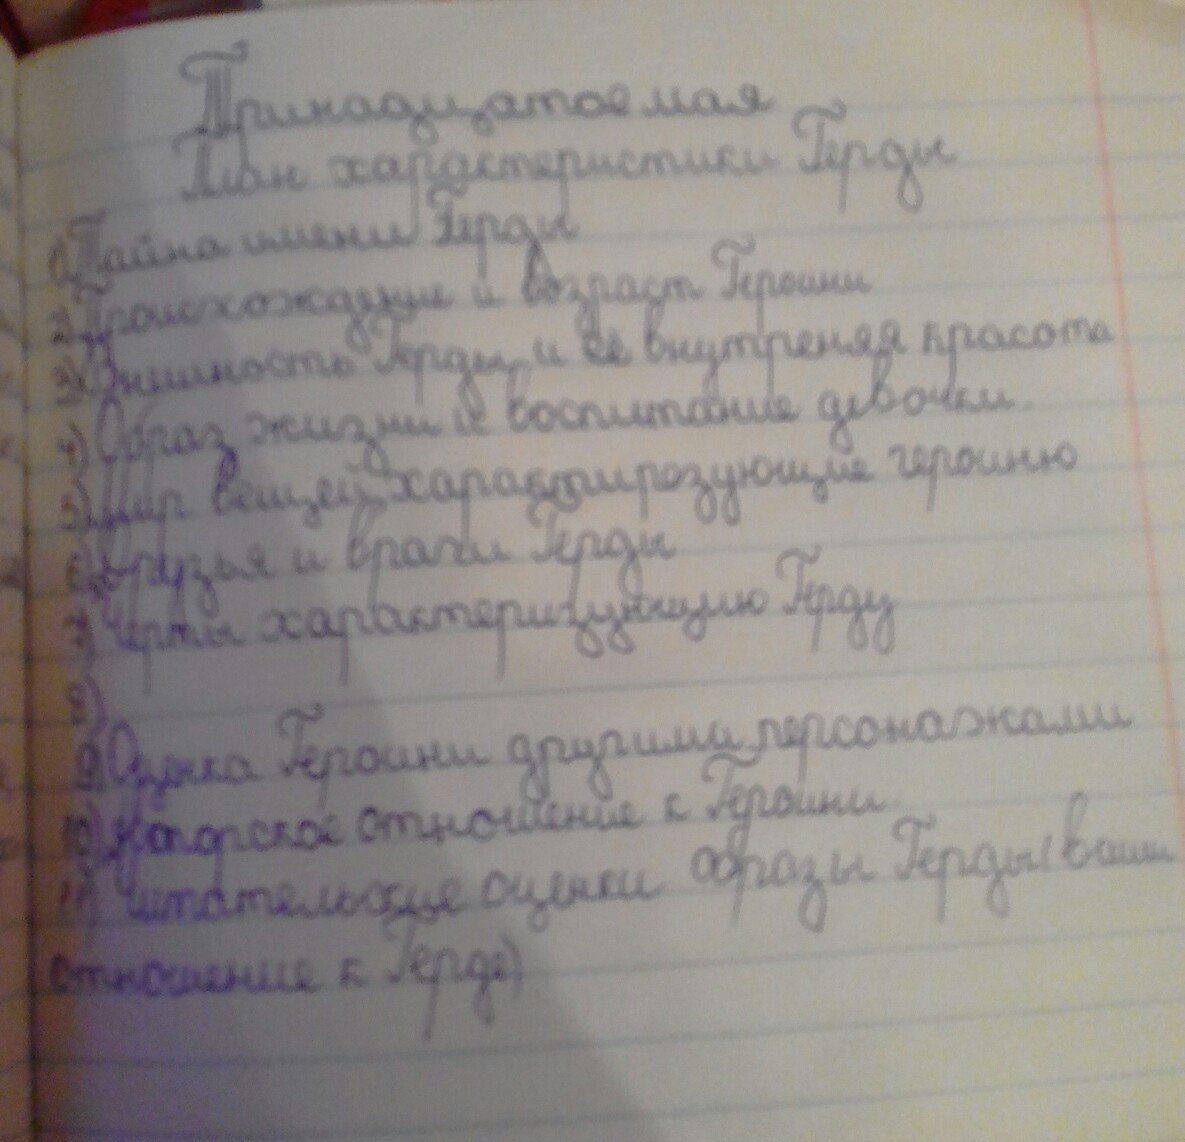 Тринадцатое мая
План характеристики Герды
1) Тайна имени Герды
2) Происхождение и возраст Героини
3) Внешность Герды и её внутреняя красота
4) Образ жизни и воспитание девочки
5) Мир вещей, характирозующие героиню
6) Друзья и враги Герды
7) Черты характеризующию Герду
8)
9) Оценка Героини другими персонажами
10) Авторское отношение к Героини
11) Читательские оценки образы Герды (ваши
отношение к Герде)